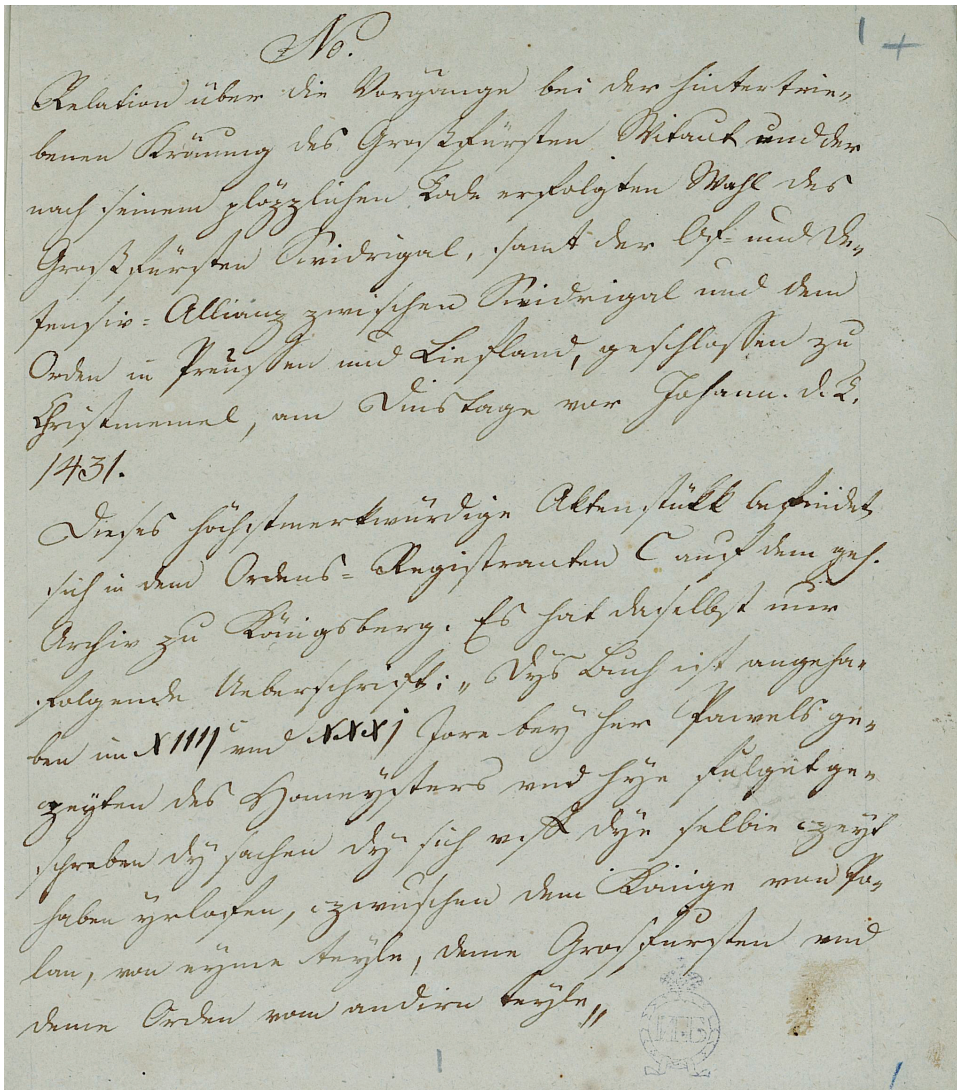 No.
Relation über die Vorgänge bei der hintertrie-
benen Krönung des Großfürsten Witaut und der
nach seinem plözzlichen Tode erfolgten Wahl des
Großfürsten Swidrigal, samt der Of- und De-
fensiv-Allianz zwischen Swidrigal und dem
Orden in Preussen und Liefland, geschlossen zu
Christmemel, am Dinstage vor Johann. d. T.
1431.
Dieses höchstmerkwürdige Aktenstükk befindet
sich in dem Ordens-Registranten C auf dem geh.
Archiv zu Königsberg. Es hat daselbst nur
folgende Ueberschrift: „Dys Buch ist angeha-
ben im XIIII c und XXXj Jore bey her Pawels ge-
czeyten des Homeysters vnd hye fulget ge-
schreben dy sachen dy sich vff dye selbie czeyt
haben yrlofen, czwuschen dem Konige von Po-
lan, von eyme teyle, deme Grosfursten vnd
deme Orden vom andirn teyle„